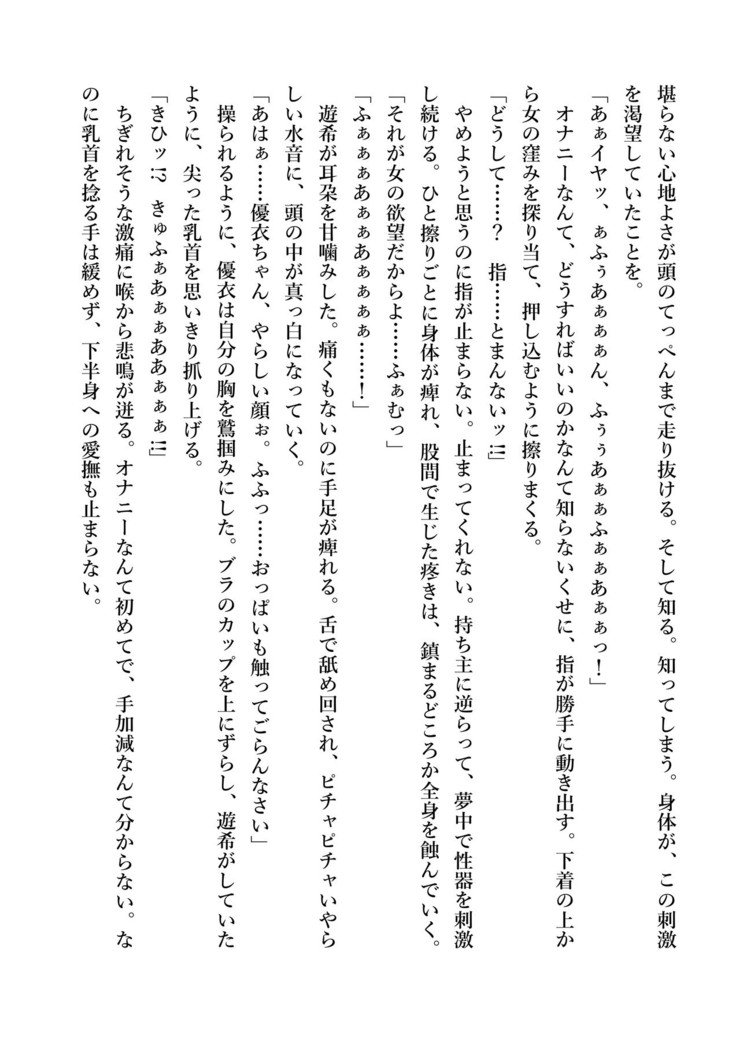 堪らない心地よさが頭のてっぺんまで走り抜ける。そして知る。知ってしまう。身体が、この刺激
を渇望していたことを。
「あぁイヤッ、ぁふぅあぁぁぁん、ふぅぅあぁぁふぁぁあぁぁっ！」
オナニーなんて、どうすればいいのかなんて知らないくせに、指が勝手に動き出す。下着の上か
ら女の窪みを探り当て、押し込むように擦りまくる。
「どうして……？　指……とまんないッ!!」
やめようと思うのに指が止まらない。止まってくれない。持ち主に逆らって、夢中で性器を刺激
し続ける。ひと擦りごとに身体が痺れ、股間で生じた疼きは、鎮まるどころか全身を蝕んでいく。
「それが女の欲望だからよ……ふぁむっ」
「ふぁぁぁあぁぁあぁぁぁぁ……！」
遊希が耳朶を甘噛みした。痛くもないのに手足が痺れる。舌で舐め回され、ピチャピチャいやら
しい水音に、頭の中が真っ白になっていく。
「あはぁ……優衣ちゃん、やらしい顔ぉ。ふふっ……おっぱいも触ってごらんなさい」
操られるように、優衣は自分の胸を鷲掴みにした。ブラのカップを上にずらし、遊希がしていた
ように、尖った乳首を思いきり抓り上げる。
「きひッ!?　きゅふぁあぁぁああぁぁぁ!!」
ちぎれそうな激痛に喉から悲鳴が迸る。オナニーなんて初めてで、手加減なんて分からない。な
のに乳首を捻る手は緩めず、下半身への愛撫も止まらない。